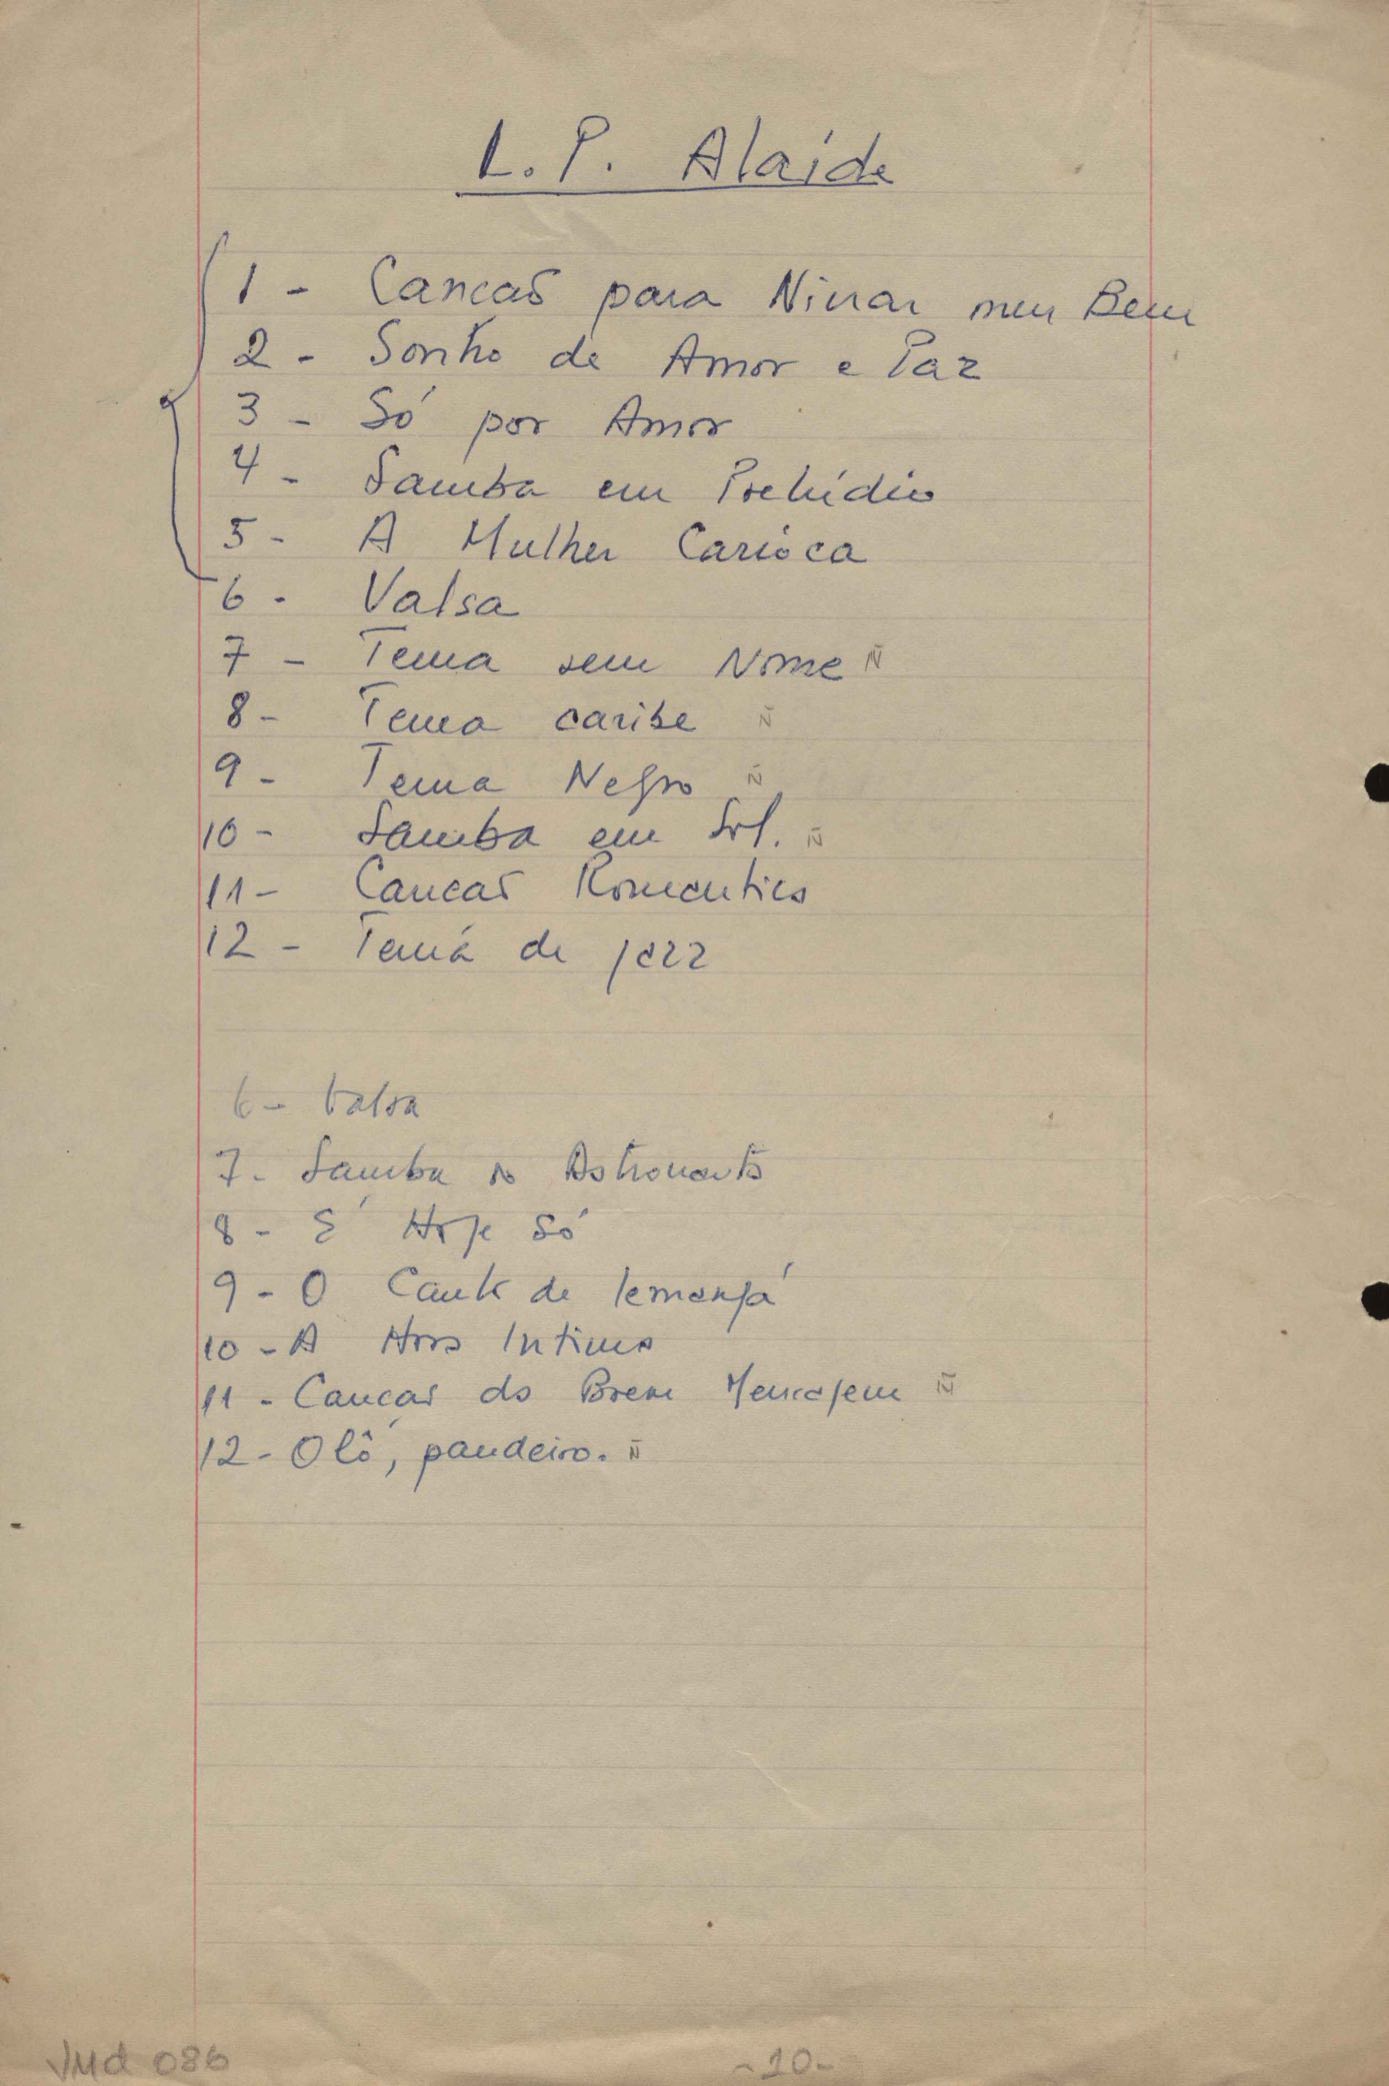 L.P. Alaide
1 - Cancão para Ninar meu Bem
2 - Sonho de Amor e Paz
3 - Só por Amor
4 - Samba em Prelúdio
5 - A Mulher Carioca
6 - Valsa
7 - Tema sem Nome Ñ
8 - Tema caribe Ñ
9 - Tema Negro Ñ
10 - Samba em Sol. Ñ
11 - Cancão Romantica
12 - Tema de jazz
6 - Valsa
7. Samba do Astronauta
8 - É Hoje Só
9 - O Canto de Iemanjá
10 - A Hora Intima
11 - Cancão da Breve Mensagem Ñ
12 - Olô, pandeiro. Ñ
VMd 086
-10-